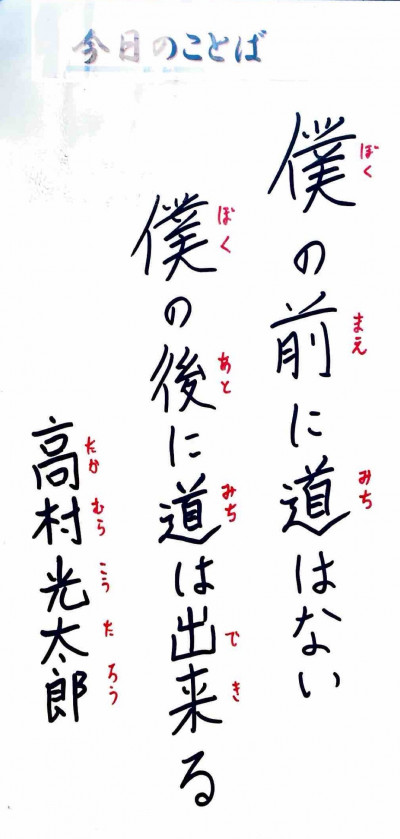 今日のことば
僕の前に道はない
ぼく
まえ
みち
僕の後に道は出来る
ぼく
あと
みち
で
き
高村光太郎
たか
むら
こう
た
ろう